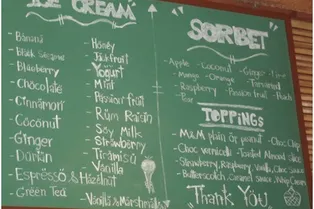 ICE CREAM
- Banana
- Black Sesame
- Blueberry
- Chocolate
- Cinnamon
- Coconut
- Ginger
- Durian
- Espresso & Hazelnut
- Green Tea
- Honey
- Jackfruit
- Yogurt
- Mint
- Passion fruit
- Rum Raisin
- Soy Milk
- Strawberry
- Tiramisu
- Vanilla
- Vanilla & Marshmallow
SORBET
- Apple - Coconut - Ginger - Lime
- Mango - Orange - Tamarind
- Raspberry - Passion Fruit - Peach
TOPPINGS
- M&M plain or peanut - Choc Chip
- Choc vermicelli - Toasted Almond slice
- Strawberry, Raspberry, Vanilla, Choc Sauce
- Butterscotch, Caramel Sauce, Whip Cream
THANK YOU